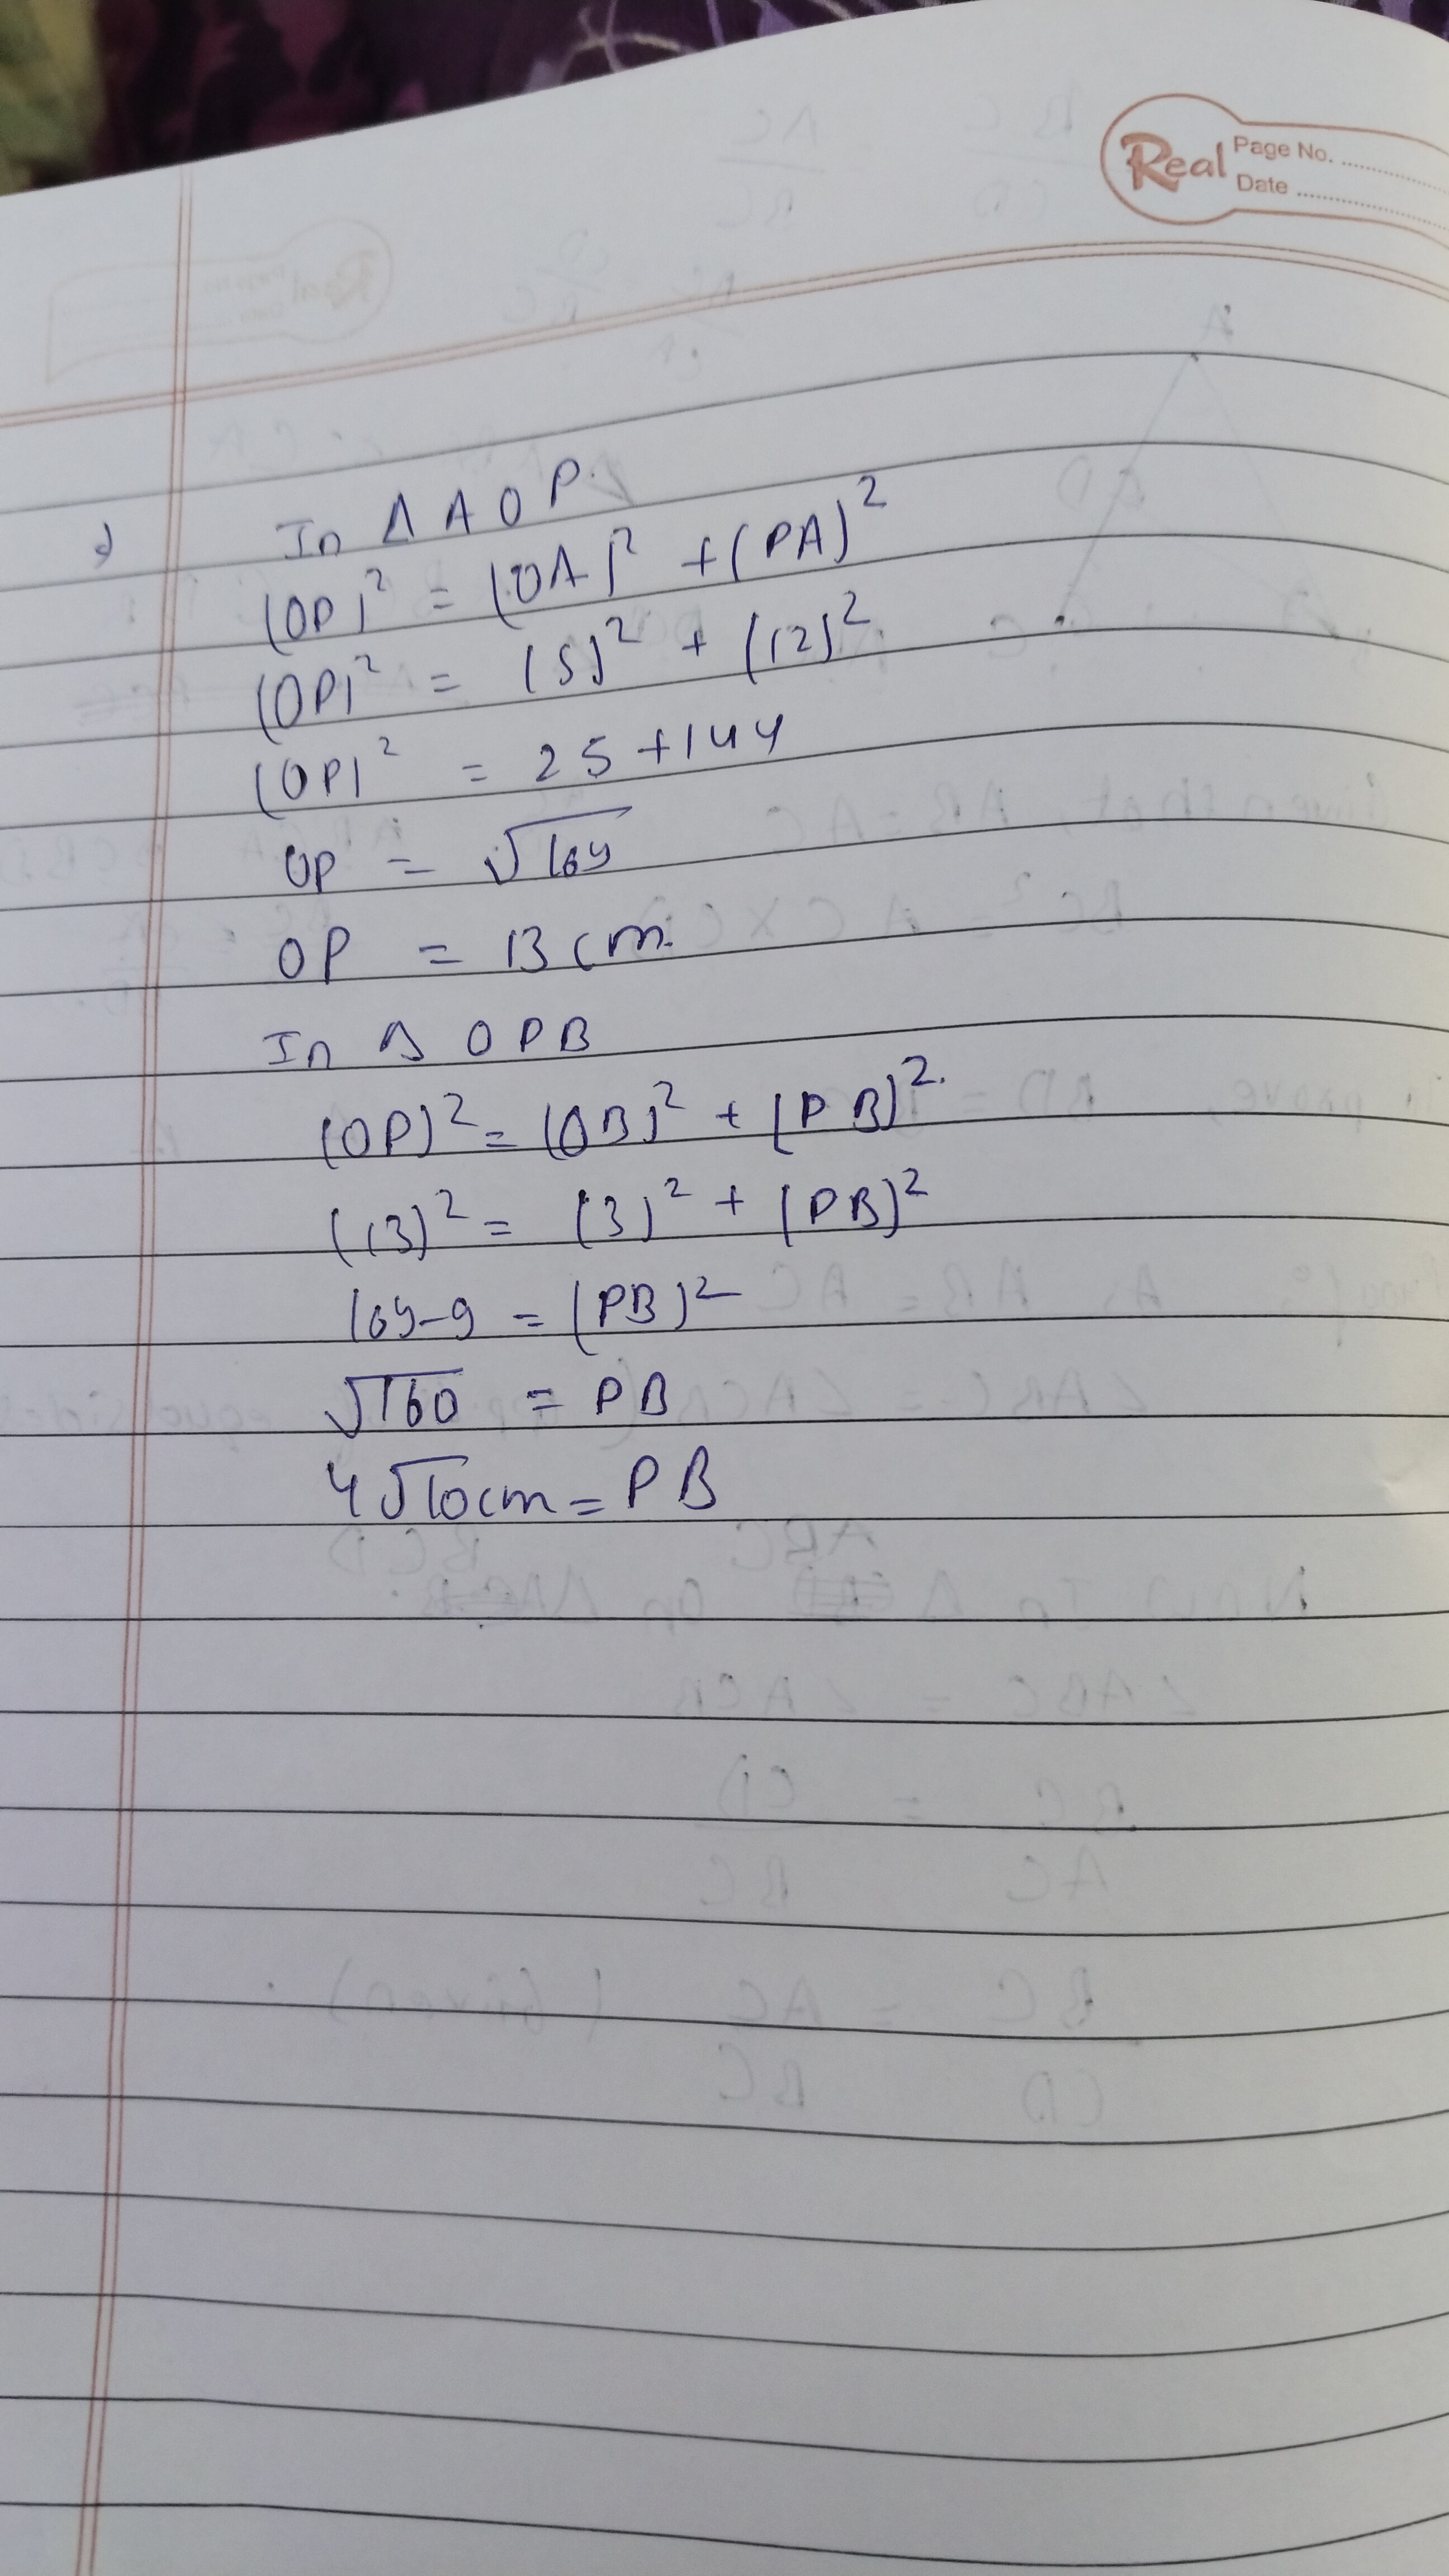 Real Page No. ........
Date ........
In Δ A O P.
(OP)² = (OA)² + (PA)²
(OP)² = (5)² + (12)²
(OP)² = 25 + 144
OP = √169
OP = 13 cm.
In Δ O P B
(OP)² = (OB)² + (PB)².
(13)² = (3)² + (PB)²
169-9 = (PB)²
√160 = PB
4√10cm = PB